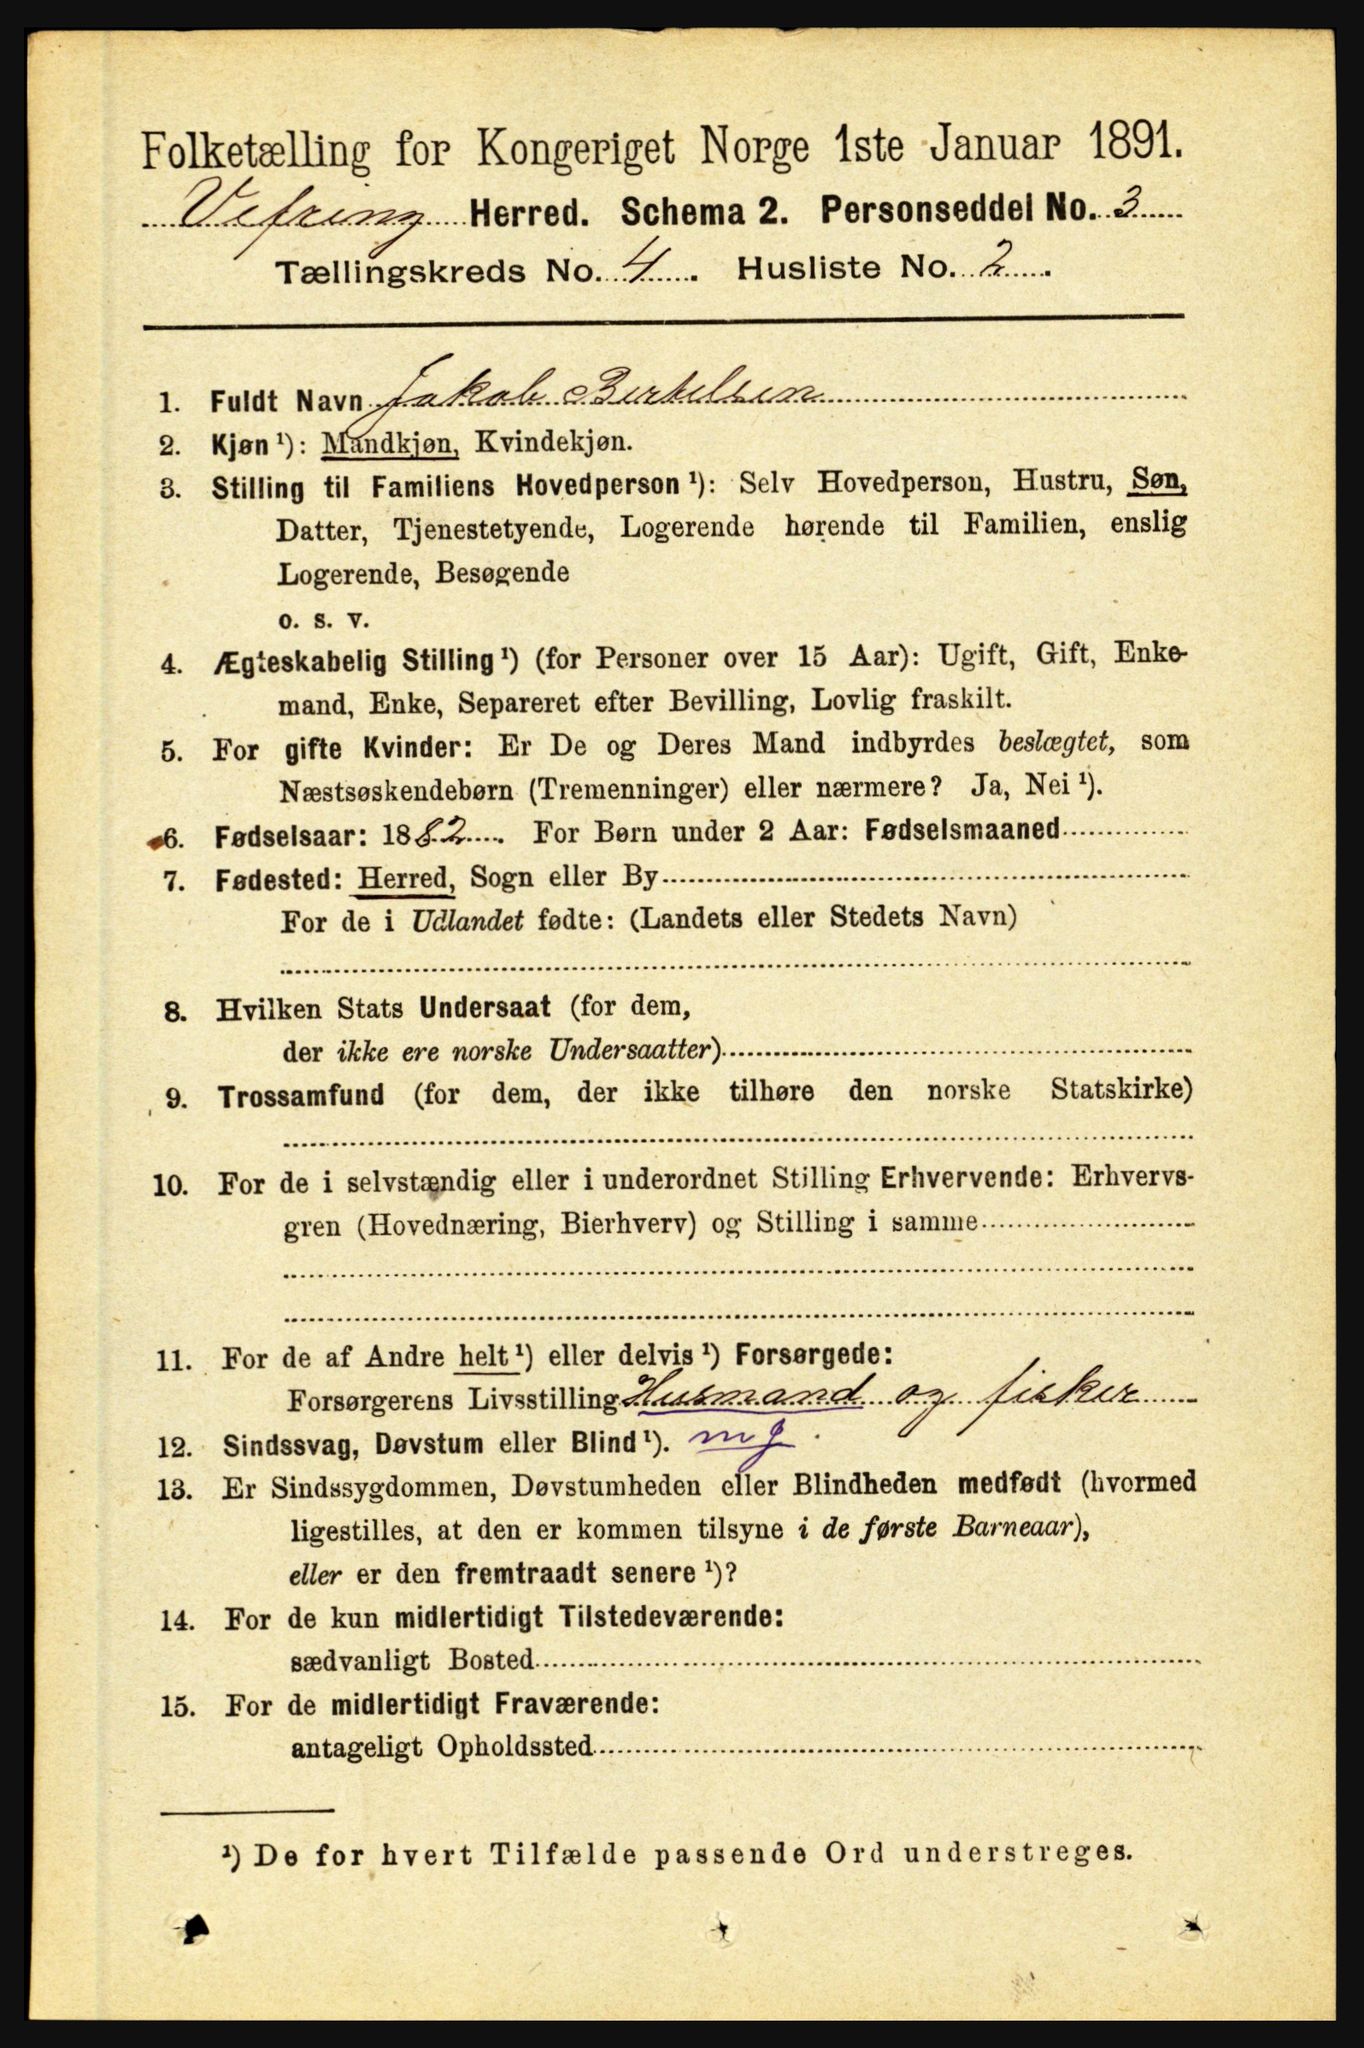 Folketælling for Kongeriget Norge 1ste Januar 1891.
Vefsen Herred. Schema 2. Personseddel No. 3
Tællingskreds No. 4. Husliste No. 2.
1. Fuldt Navn Jakob Bertelsen
2. Kjøn ¹): Mandkjøn, Kvindekjøn.
3. Stilling til Familiens Hovedperson ¹): Selv Hovedperson, Hustru, Søn,
Datter, Tjenestetyende, Logerende hørende til Familien, enslig
Logerende, Besøgende
o. s. v.
4. Ægteskabelig Stilling ¹) (for Personer over 15 Aar): Ugift, Gift, Enke-
mand, Enke, Separeret efter Bevilling, Lovlig fraskilt.
5. For gifte Kvinder: Er De og Deres Mand indbyrdes beslægtet, som
Næstsøskendebørn (Tremenninger) eller nærmere? Ja, Nei ¹).
6. Fødselsaar: 1882. For Børn under 2 Aar: Fødselsmaaned
7. Fødested: Herred, Sogn eller By
For de i Udlandet fødte: (Landets eller Stedets Navn)
8. Hvilken Stats Undersaat (for dem,
der ikke ere norske Undersaatter)
9. Trossamfund (for dem, der ikke tilhøre den norske Statskirke)
10. For de i selvstændig eller i underordnet Stilling Erhvervende: Erhvervs-
gren (Hovednæring, Bierhverv) og Stilling i samme
11. For de af Andre helt ¹) eller delvis ¹) Forsørgede:
Forsørgerens Livsstilling Husmand og fisker
12. Sindssvag, Døvstum eller Blind ¹). mg.
13. Er Sindssygdommen, Døvstumheden eller Blindheden medfødt (hvormed
ligestilles, at den er kommen tilsyne i de første Barneaar),
eller er den fremtraadt senere ¹)?
14. For de kun midlertidigt Tilstedeværende:
sædvanligt Bosted
15. For de midlertidigt Fraværende:
antageligt Opholdssted
¹) De for hvert Tilfælde passende Ord understreges.